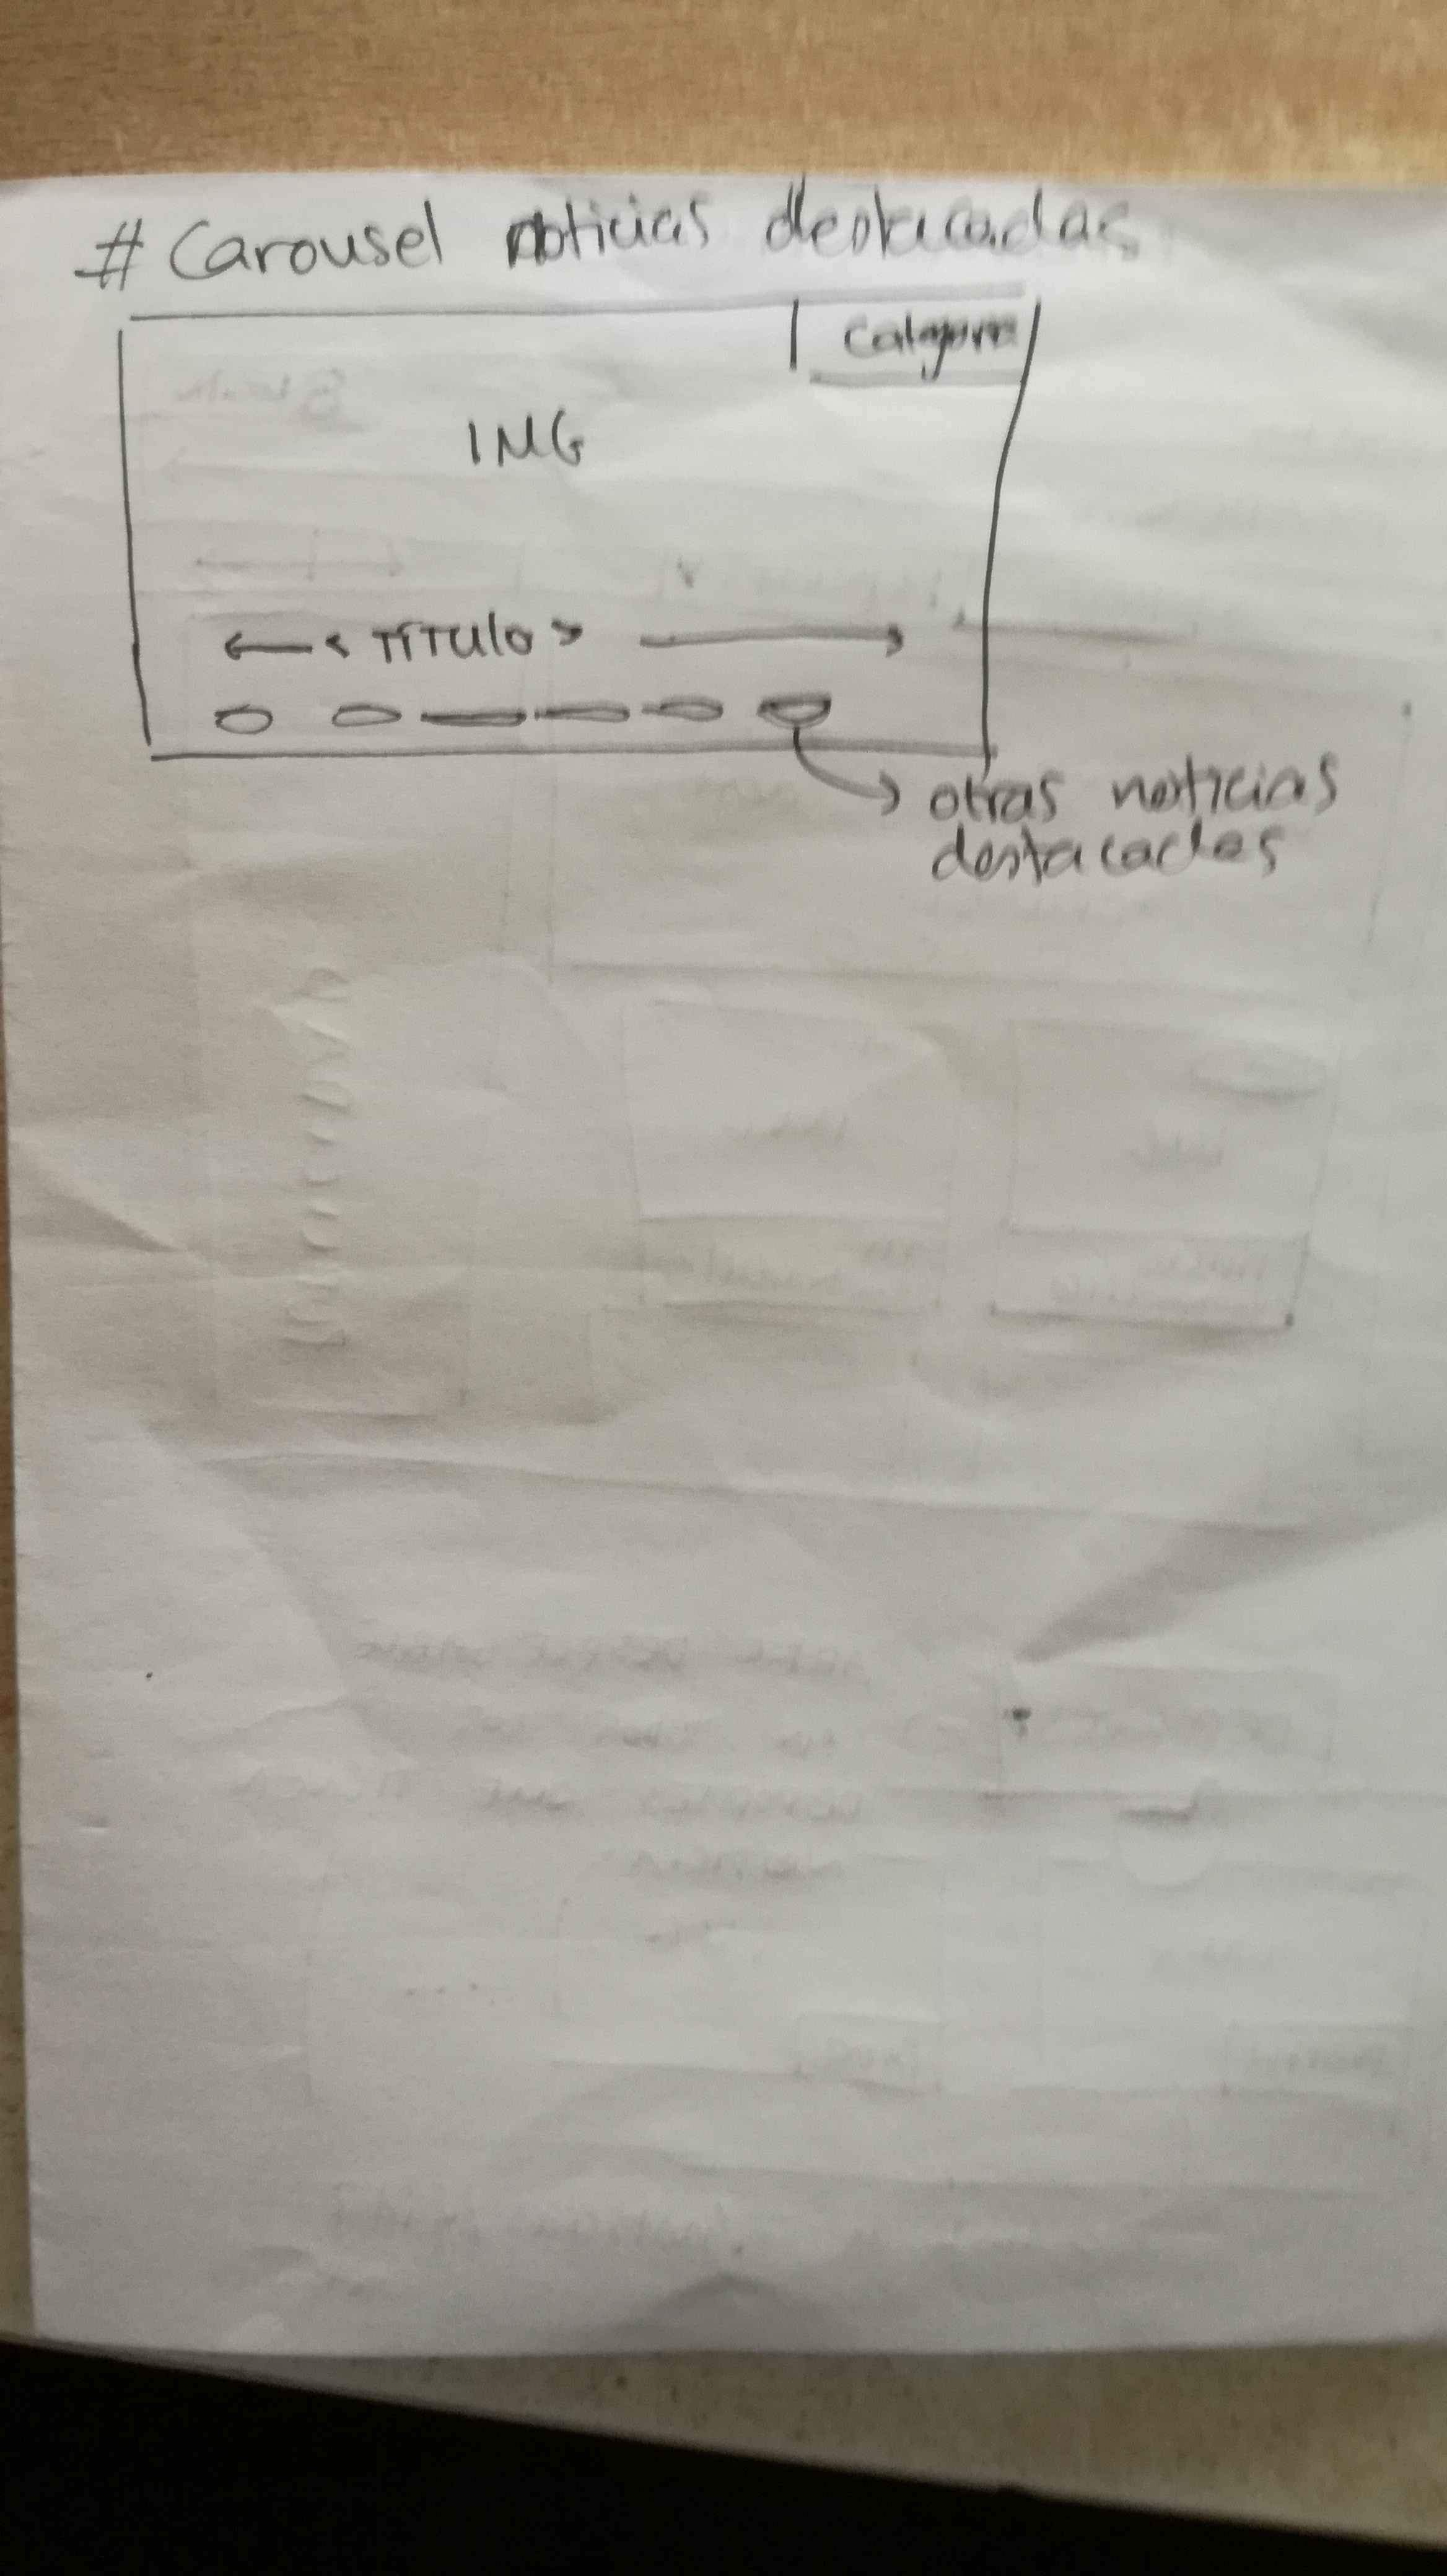 # Carousel noticias destacadas
Categoria
IMG
< TÍTULO >
otras noticias
destacadas